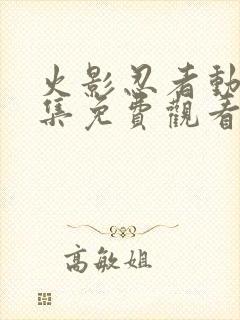 火影忍者動
集免費觀看
高敏姐